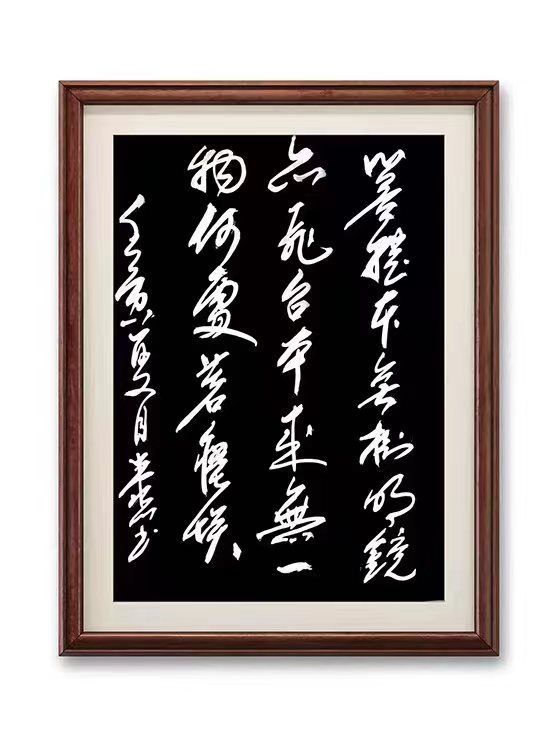 菩提本無樹明鏡
亦非台本來無一
物何處惹塵埃
壬寅夏月书